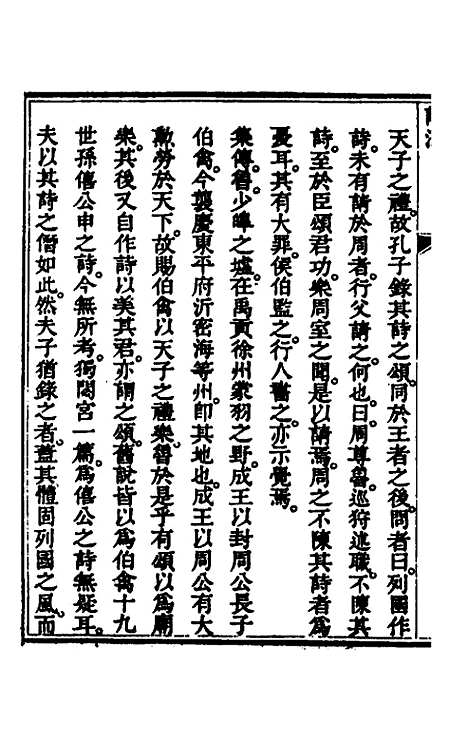 天子之禮。故孔子錄其詩之頌。同於王者之後。問者曰。列國作
詩。未有請於周者。行父請之。何也。曰。周尊魯。巡狩述職。不陳其
詩。至於臣頌君功。樂周室之聞。是以請焉。周之不陳其詩者。為
憂耳。其有大罪。侯伯監之。行人書之。亦示覺焉。
集傳。魯。少皞之墟。在禹貢徐州蒙羽之野。成王以封周公長子
伯禽。今襲慶東平府沂密海等州。即其地也。成王以周公有大
勳勞於天下。故賜伯禽以天子之禮樂。魯於是乎有頌以為廟
樂。其後又自作詩以美其君。亦謂之頌。舊說皆以為伯禽十九
世孫僖公申之詩。今無所考。獨閟宮一篇。為僖公之詩無疑耳。
夫以其詩之僭如此。然夫子猶錄之者。蓋其體固列國之風。而